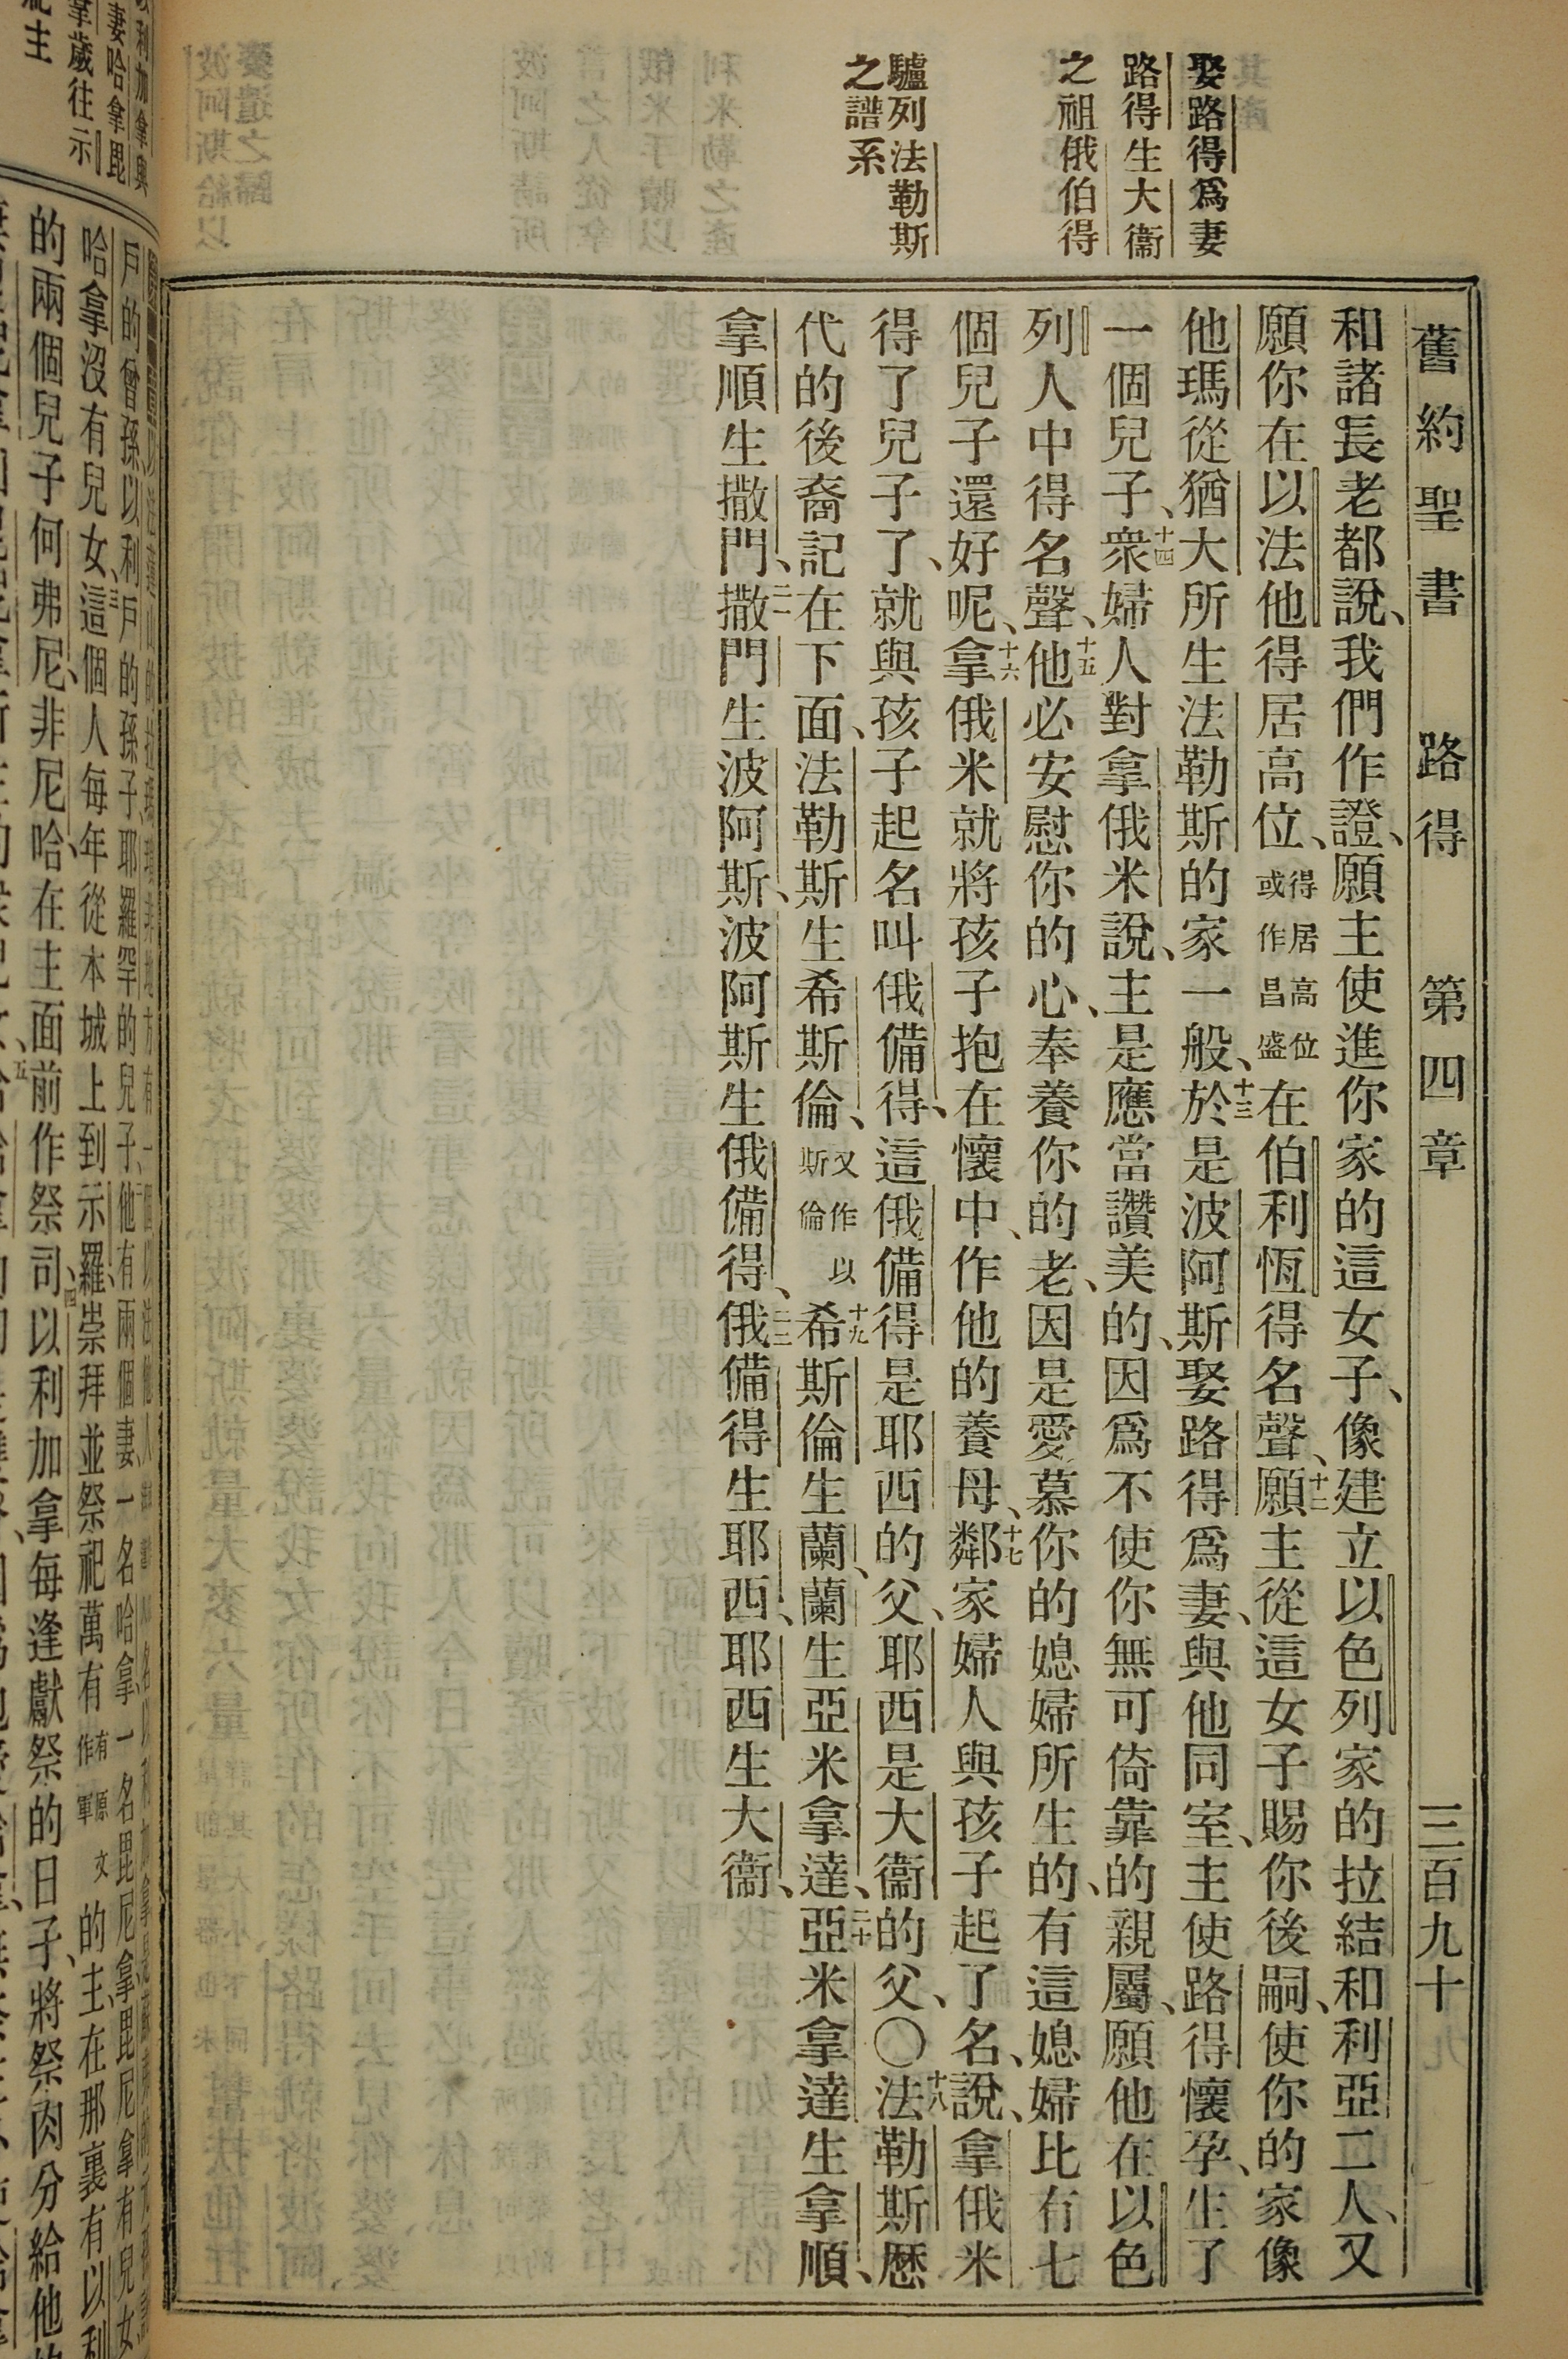 舊約聖書 路得 第四章 三百九十九
娶路得爲妻
路得生大衞
之祖俄伯得
驢列法勒斯
之譜系
和諸長老都說、我們作證、願主使進你家的這女子、像建立以色列家的拉結和利亞二人、又
願你在以法他得居高位、得居高位或作昌盛在伯利恆得名聲、十二願主從這女子賜你後嗣、使你的家像
他瑪從猶大所生法勒斯的家一般、十三於是波阿斯娶路得爲妻、與他同室、主使路得懷孕、生了
一個兒子、十四衆婦人對拿俄米說、主是應當讚美的、因爲不使你無可倚靠的親屬、願他在以色
列人中得名聲、十五他必安慰你的心、奉養你的老、因是愛慕你的媳婦所生的、有這媳婦比有七
個兒子還好呢、十六拿俄米就將孩子抱在懷中、作他的養母、十七鄰家婦人與孩子起了名、說、拿俄米
得了兒子了、就與孩子起名叫俄備得、這俄備得是耶西的父、耶西是大衞的父、〇十八法勒斯歷
代的後裔記在下面、法勒斯生希斯倫、又作以斯倫十九希斯倫生蘭、蘭生亞米拿達、二十亞米拿達生拿順、
拿順生撒門、二一撒門生波阿斯、波阿斯生俄備得、二二俄備得生耶西、耶西生大衞、
戶的曾孫、以利戶的孫子、耶羅罕的兒子、二他有兩個妻、一名哈拿、一名毘尼拿、毘尼拿有兒女、
哈拿沒有兒女、三這個人每年從本城上到示羅、崇拜並祭祀萬有有原文作軍的主、在那裏有以利
的兩個兒子何弗尼、非尼哈、在主面前作祭司、四以利加拿每逢獻祭的日子、將祭肉分給他的